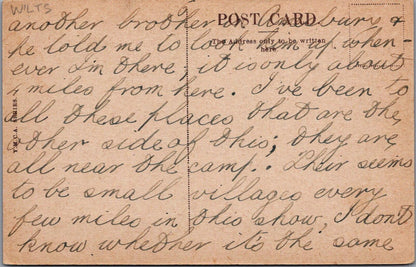 WILTS
POST CARD
The Address only to be written
here
another brother in
he told me to look him up when-
ever I'm there, it is only about
4 miles from here. I've been to
all these places that are the
other side of this; they are
all near the camp. Their seems
to be small villages every
few miles in this show, I don't
know whether it's the same